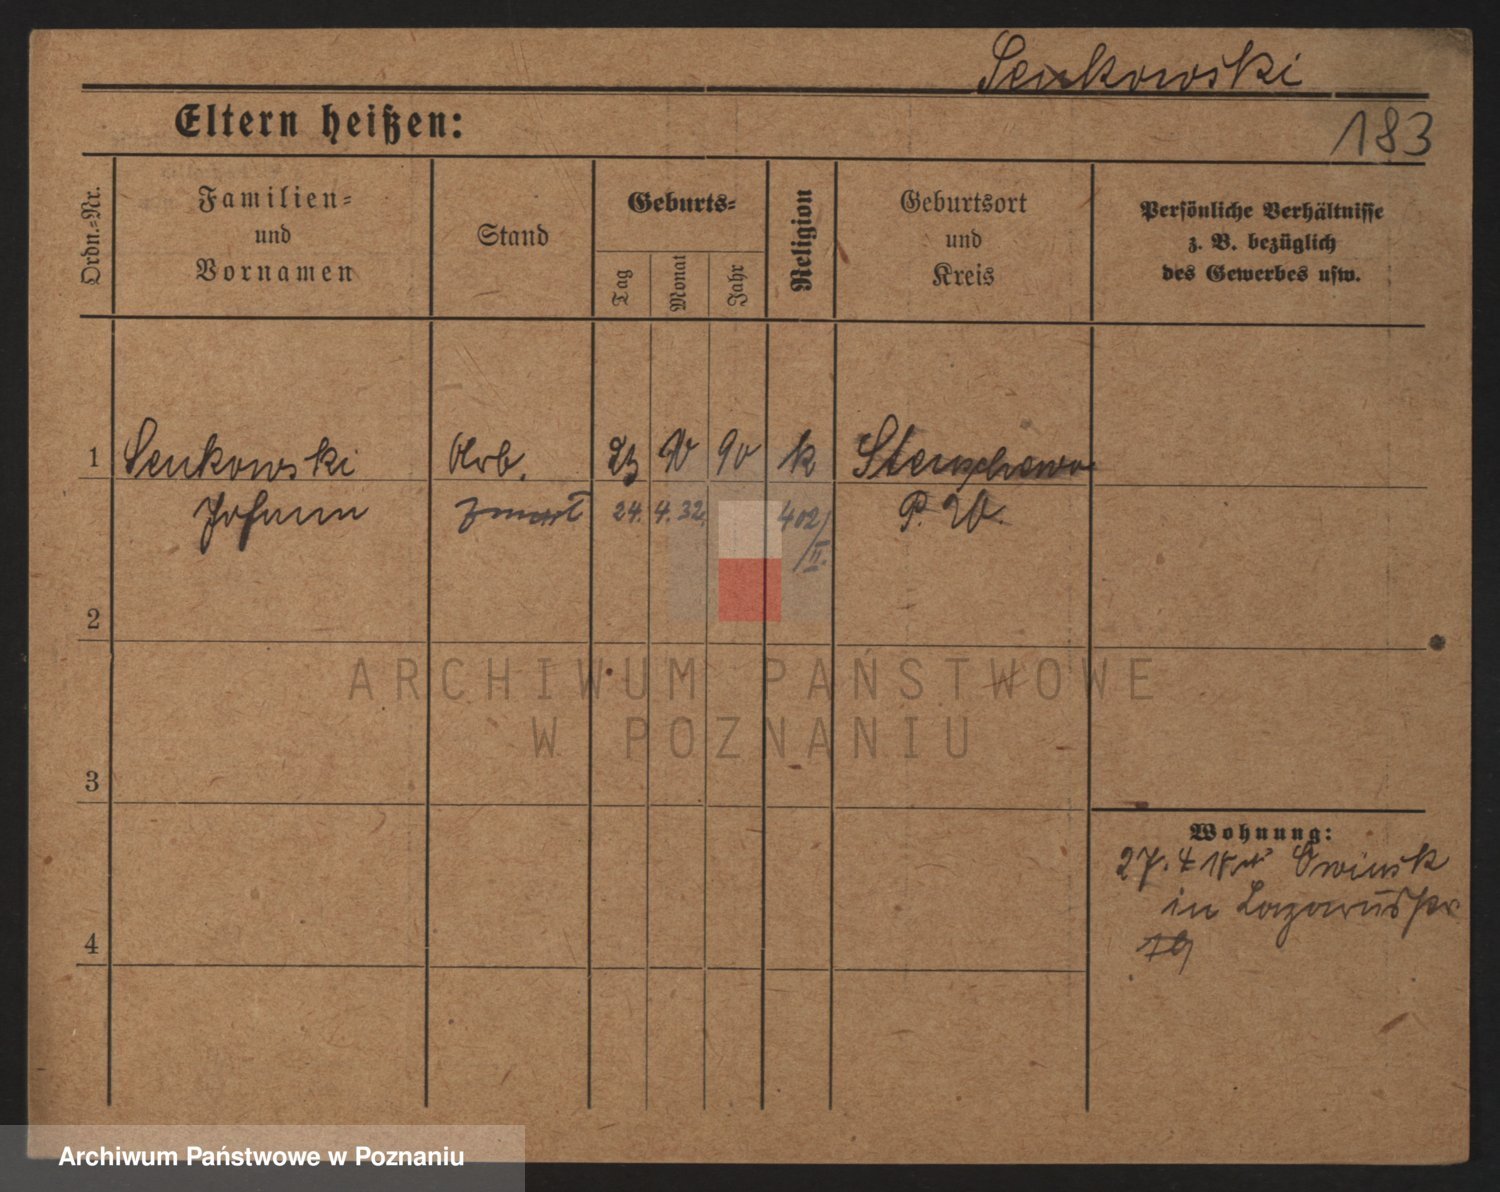 Senkowski
Eltern heißen:
183
Ordn.=Nr.
Familien=
und
Vornamen
Stand
Geburts=
Tag
Monat
Jahr
Religion
Geburtsort
und
Kreis
Persönliche Verhältnisse
z. B. bezüglich
des Gewerbes usw.
1 Senkowski Arb. 23 90 k
Johann zmarł 24. 4. 32. 402/II. P. W.
2
3
4
Wohnung:
27. 4 18 Owinsk
in Lazarusstr
19
ARCHIWUM PAŃSTWOWE
W POZNANIU
Archiwum Państwowe w Poznaniu